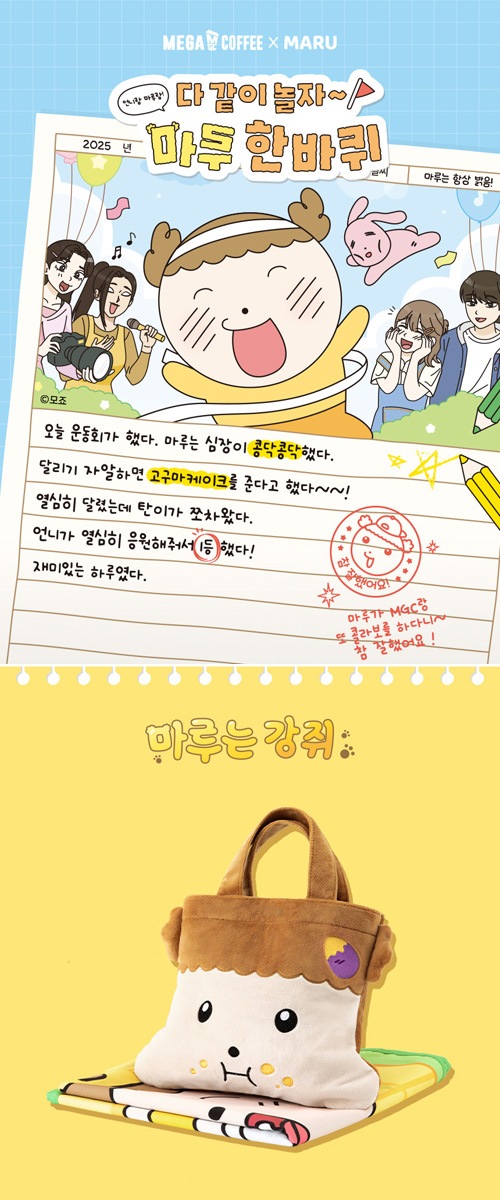 MEGA MGC COFFEE X MARU
언니랑 마루랑!
다 같이 놀자~
마루 한바퀴
2025 년
마루는 항상 밝음!
©모죠
오늘 운동회가 했다. 마루는 심장이 콩닥콩닥했다.
달리기 자알하면 고구마케이크를 준다고 했다~~!
열심히 달렸는데 탄이가 쪼차왔다.
언니가 열심히 응원해줘서 1등 했다!
재미있는 하루였다.
참 잘했어요!
마루가 MGC랑
또 콜라보를 하다니~
참 잘했어요!
마루는 강쥐